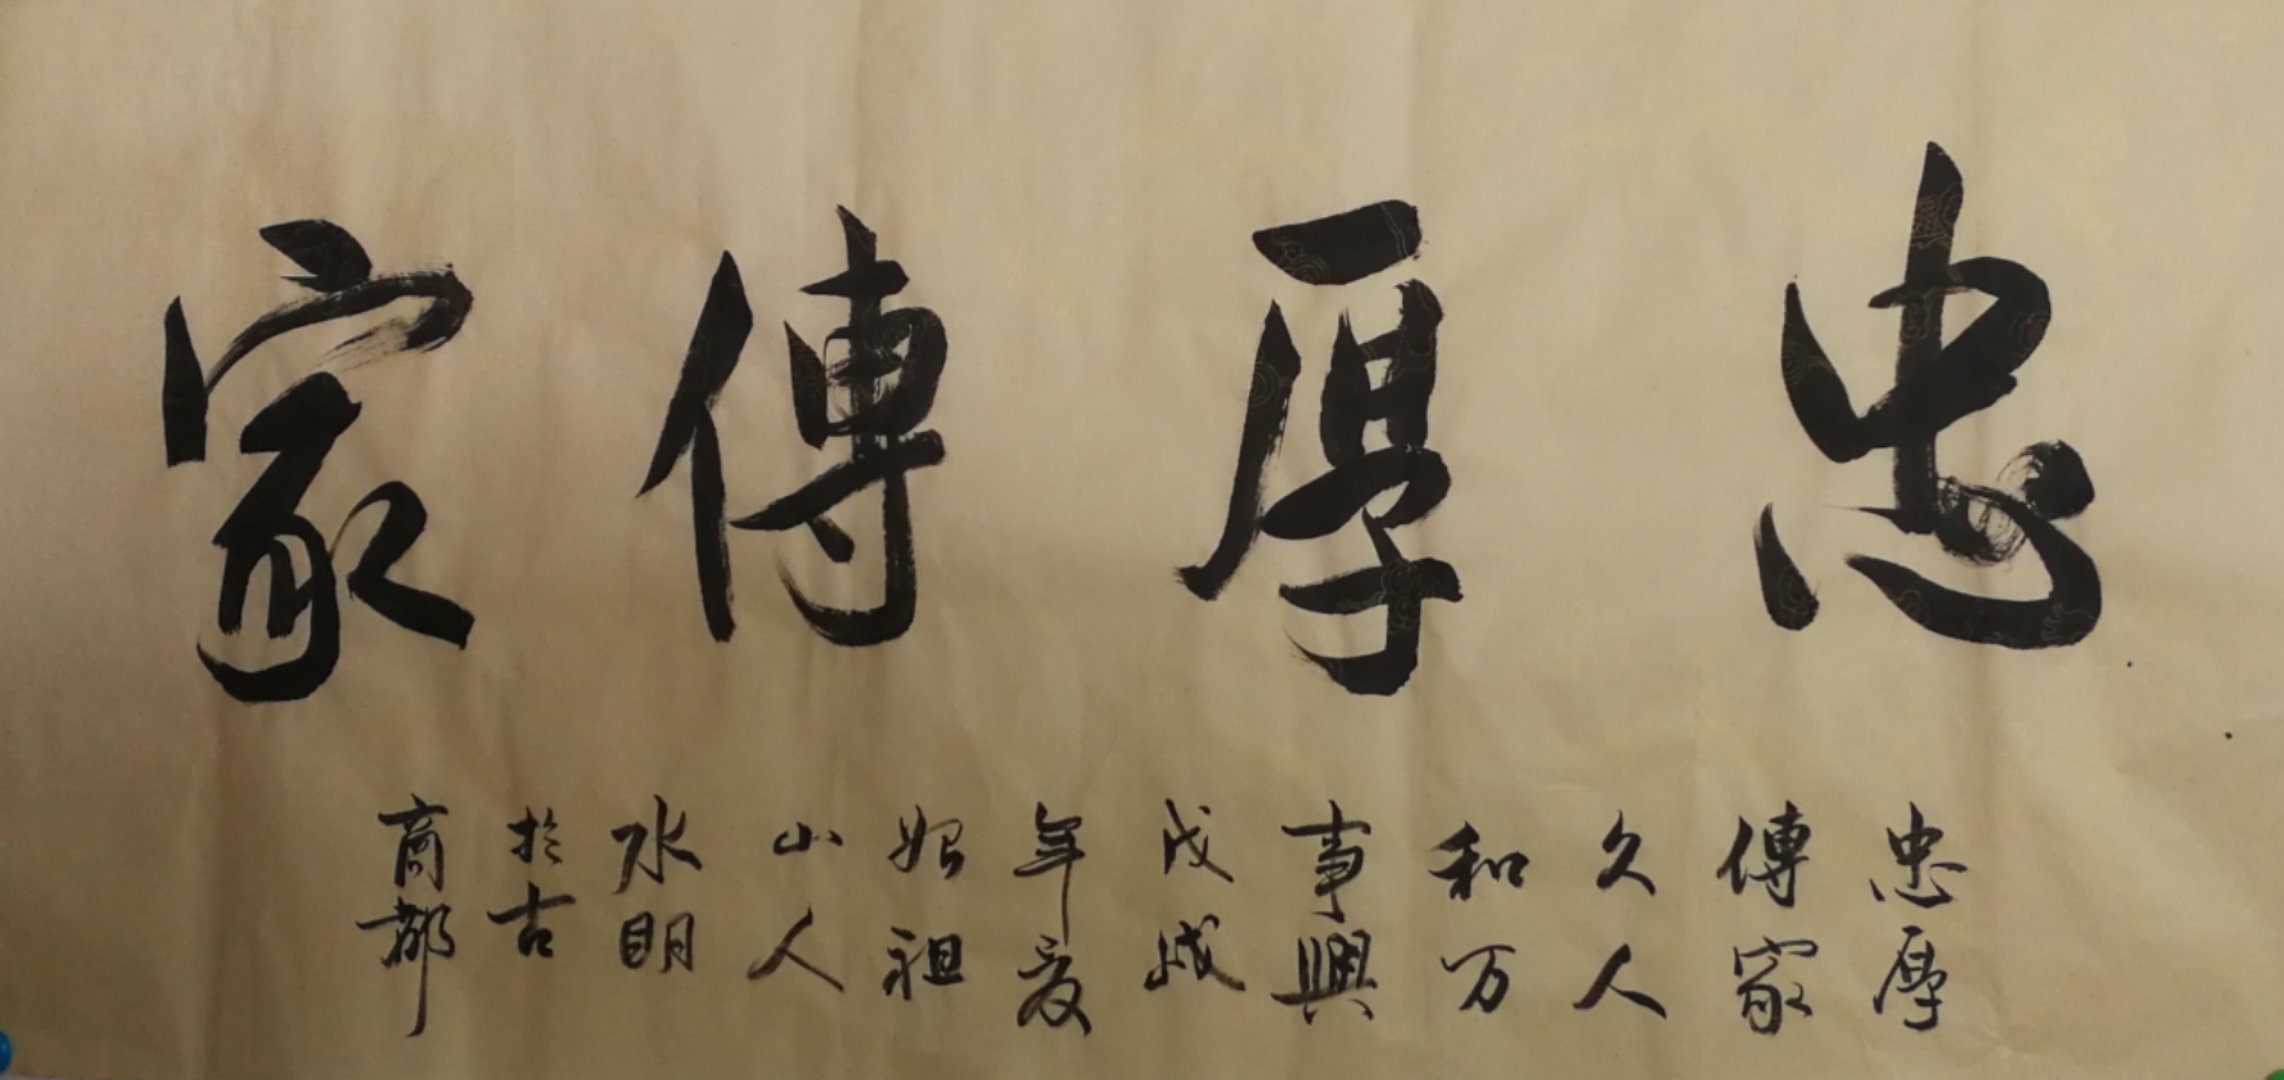 忠厚傳家
忠厚
傳家
久人
和万
事興
戊戌
年夏
始祖
山人
水明
於古
商都